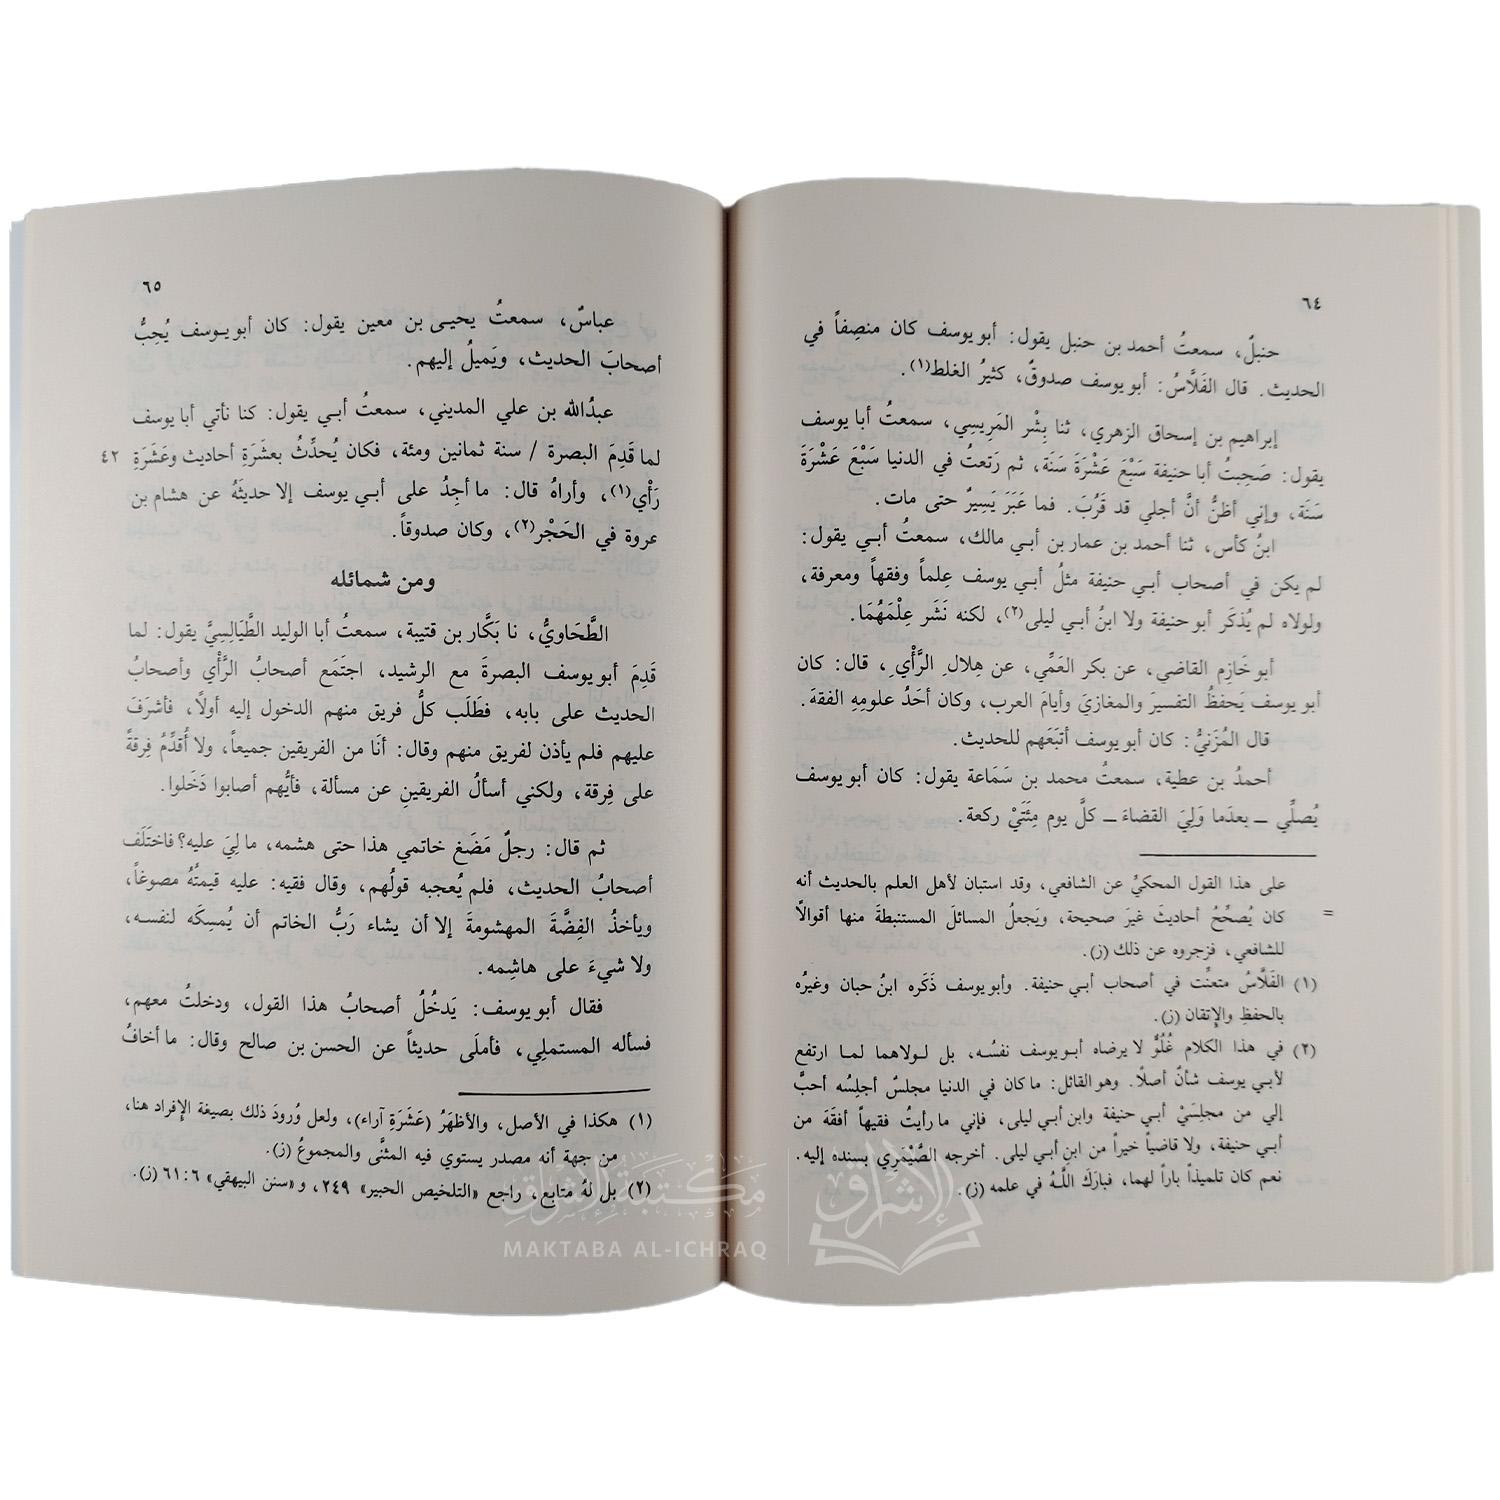 ٦٤
حنبلٌ، سمعتُ أحمد بن حنبل يقول: أبو يوسف كان منصِفاً في
الحديث. قال الفَلَّاسُ: أبو يوسف صدوقٌ، كثيرُ الغلط(١).
إبراهيم بن إسحاق الزهري، ثنا بِشْر المَرِيسِي، سمعتُ أبا يوسف
يقول: صَحِبتُ أبا حنيفة سَبْعَ عَشْرَةَ سَنَة، ثم رَتعتُ في الدنيا سَبْعَ عَشْرَةَ
سَنَة، وإني أظنُّ أنَّ أجلي قد قَرُبَ. فما عَبَرَ يَسِيرٌ حتى مات.
ابنُ كأس، ثنا أحمد بن عمار بن أبي مالك، سمعتُ أبي يقول:
لم يكن في أصحاب أبي حنيفة مثلُ أبي يوسف عِلماً وفقهاً ومعرفة،
ولولاه لم يُذكَر أبو حنيفة ولا ابنُ أبي ليلى(٢)، لكنه نَشَر عِلْمَهُمَا.
أبو خَازِم القاضي، عن بكر العَمِّي، عن هِلالِ الرَّأْيِ، قال: كان
أبو يوسف يَحفظُ التفسيرَ والمغازيَ وأيامَ العرب، وكان أحَدُ علومِهِ الفقهَ.
قال المُزَنيُّ: كان أبو يوسف أتبَعَهم للحديث.
أحمدُ بن عطية، سمعتُ محمد بن سَمَاعة يقول: كان أبو يوسف
يُصلِّي ــ بعدَما وَلِيَ القضاءَ ــ كلَّ يوم مِئَتَيْ ركعة.
= على هذا القول المحكيُّ عن الشافعي، وقد استبان لأهل العلم بالحديث أنه
كان يُصحِّحُ أحاديثَ غيرَ صحيحة، ويَجعلُ المسائلَ المستنبطةَ منها أقوالاً
للشافعي، فزجروه عن ذلك (ز).
(١) الفَلَّاسُ متعنِّت في أصحاب أبي حنيفة. وأبو يوسف ذَكَره ابنُ حبان وغيرُه
بالحفظِ والإتقان (ز).
(٢) في هذا الكلام غُلُوٌّ لا يرضاه أبو يوسف نفسُه، بل لولاهما لما ارتفع
لأبي يوسف شأنٌ أصلًا. وهو القائل: ما كان في الدنيا مجلسٌ أجلِسُه أحبَّ
إلي من مجلِسَيْ أبي حنيفة وابن أبي ليلى، فإني ما رأيتُ فقيهاً أفقَهَ من
أبي حنيفة، ولا قاضياً خيراً من ابنِ أبي ليلى. أخرجه الصَّيْمَرِي بسنده إليه.
نعم كان تلميذاً باراً لهما، فبارَكَ اللَّهُ في علمه (ز).
٦٥
عباسٌ، سمعتُ يحيى بن معين يقول: كان أبو يوسف يُحِبُّ
أصحابَ الحديث، ويَميلُ إليهم.
عبدُالله بن علي المديني، سمعتُ أبي يقول: كنا نأتي أبا يوسف
لما قَدِمَ البصرة / سنة ثمانين ومئة، فكان يُحدِّثُ بعشَرَةِ أحاديث وعَشَرَةِ ٤٢
رَأْي(١)، وأراهُ قال: ما أجِدُ على أبي يوسف إلا حديثَهُ عن هشام بن
عروة في الحَجْر(٢)، وكان صدوقاً.
ومن شمائله
الطَّحَاويُّ، نا بَكَّار بن قتيبة، سمعتُ أبا الوليد الطَّيَالِسِيَّ يقول: لما
قَدِمَ أبو يوسف البصرةَ مع الرشيد، اجتَمَع أصحابُ الرَّأْي وأصحابُ
الحديث على بابه، فطَلَب كلُّ فريق منهم الدخول إليه أولًا، فأشرَفَ
عليهم فلم يأذن لفريق منهم وقال: أنَا من الفريقين جميعاً، ولا أُقدِّمُ فِرقةً
على فِرقة، ولكني أسألُ الفريقينِ عن مسألة، فأيُّهم أصابوا دَخَلوا.
ثم قال: رجلٌ مَضَغ خاتمي هذا حتى هشمه، ما لِيَ عليه؟ فاختَلَف
أصحابُ الحديث، فلم يُعجبه قولُهم، وقال فقيه: عليه قيمتُهُ مصوغاً،
ويأخذُ الفِضَّةَ المهشومةَ إلا أن يشاء رَبُّ الخاتم أن يُمسِكَه لنفسه،
ولا شيءَ على هاشِمه.
فقال أبو يوسف: يَدخُلُ أصحابُ هذا القول، ودخلتُ معهم،
فسأله المستملِي، فأملَى حديثاً عن الحسن بن صالح وقال: ما أخافُ
(١) هكذا في الأصل، والأظهَرُ (عَشَرَةِ آراء)، ولعل وُرودَ ذلك بصيغة الإفراد هنا،
من جهة أنه مصدر يستوي فيه المثنَّى والمجموعُ (ز).
(٢) بل لهُ متابع، راجع «التلخيص الحبير» ٢٤٩، و«سنن البيهقي» ٦:٦١ (ز).
مكتبة الإشراق
MAKTABA AL-ICHRAQ
الإشراق